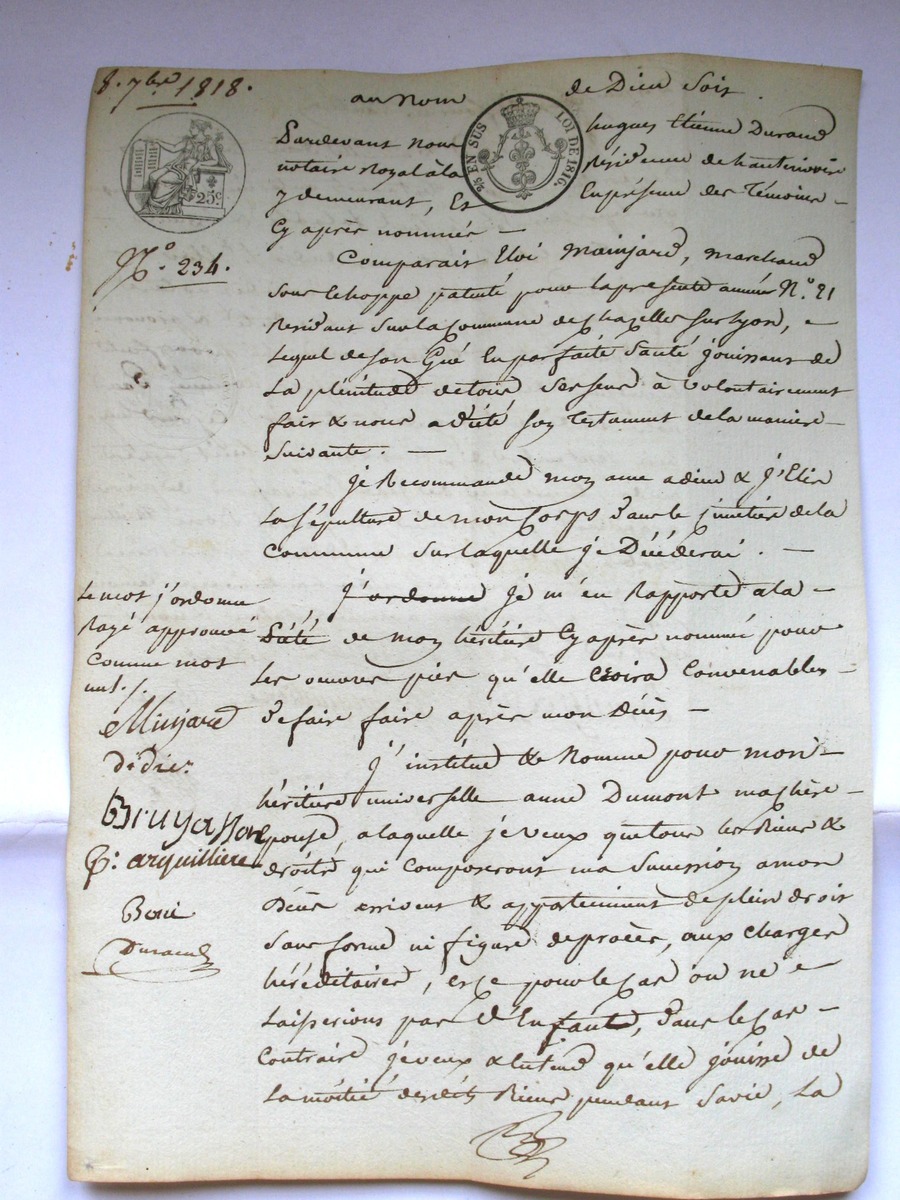 8. 7bre 1818.
au Nom de Dieu soit.
25 EN SUS LOI DE 1816.
25c
Pardevant Nous hugues Etienne Durand
notaire Royal à la Résidence de hauterivoire
y demeurant, Et En présence des Témoins
Cy après nommés —
N.o 234.
Comparait Eloi Mainjard, marchand
sous Echoppe patenté pour la presente année N.o 21
Residant sur la Commune de Chazelles sur Lyon,
Lequel de son Gré En parfaite santé jouissant de
La plénitude de tous ses sens à volontairement
fait & nous a dicté son Testament de la maniere
Suivante. —
je Recommande mon ame a dieu & j'Elis
La sépulture de mon Corps dans le simetière de la
Commune sur laquelle je Décéderai. —
j'ordonne je m'en Rapporte a la
Piété de mon héritière Cy après nommée pour
Les oeuvres pies qu'elle Croira Convenables
de faire faire après mon Décès —
Le mot j'ordonne
Rayé approuvé
Comme mot
nul./.
EMinjard
Didier
Bruyassar
P: arquilliere
Durand
j'institue & Nomme pour mon
héritière universelle anne Dumont ma chère
Epouse, a laquelle je veux que tous les Biens &
droits qui Composeront ma succession a mon
Décès arrivent & appartiennent de plein droit
sans forme ni figure de procès, aux charges
héréditaires, & ce pour le Cas où ne
Laisserions pas d'Enfants, dans le Cas
Contraire je veux & entend qu'elle jouisse de
La moitié desdits Biens pendant sa vie, La